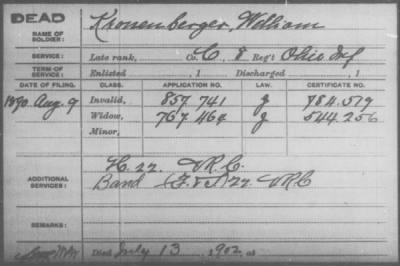 DEAD
NAME OF SOLDIER: Kronenberger, William
SERVICE: Late rank, Co. C, 8 Reg't Ohio Inf
TERM OF SERVICE: Enlisted , 1 Discharged , 1
DATE OF FILING. CLASS. APPLICATION NO. LAW. CERTIFICATE NO.
1890. Aug. 9 Invalid, 857 741 J 784.519
Widow, 767 464 J 544 256
Minor,
ADDITIONAL SERVICES: H. 22. VRC.
Band 22 VRC
REMARKS:
Died July 13 1902, at